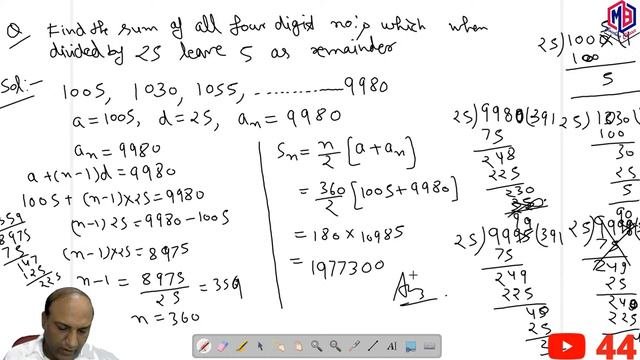 Q Find the sum of all four digit no's which when
divided by 25 leave 5 as remainder
Sol:-
1005, 1030, 1055, ..............9980
a=1005, d=25, an=9980
an=9980
a+(n-1)d=9980
1005+(n-1)×25=9980
(n-1)25=9980-1005
(n-1)×25=8975
n-1=8975/25=359
n=360
359
8975
75
147
125
225
Sn=n/2[a+an]
=360/2[1005+9980]
=180×10985
=1977300
Ans.
25)9980(391
75
248
225
230
25)9995(391
75
249
225
45
25
25)1000
100
5
25)1030(
100
30
25
5
90
25)999
249
25
225
MB
44